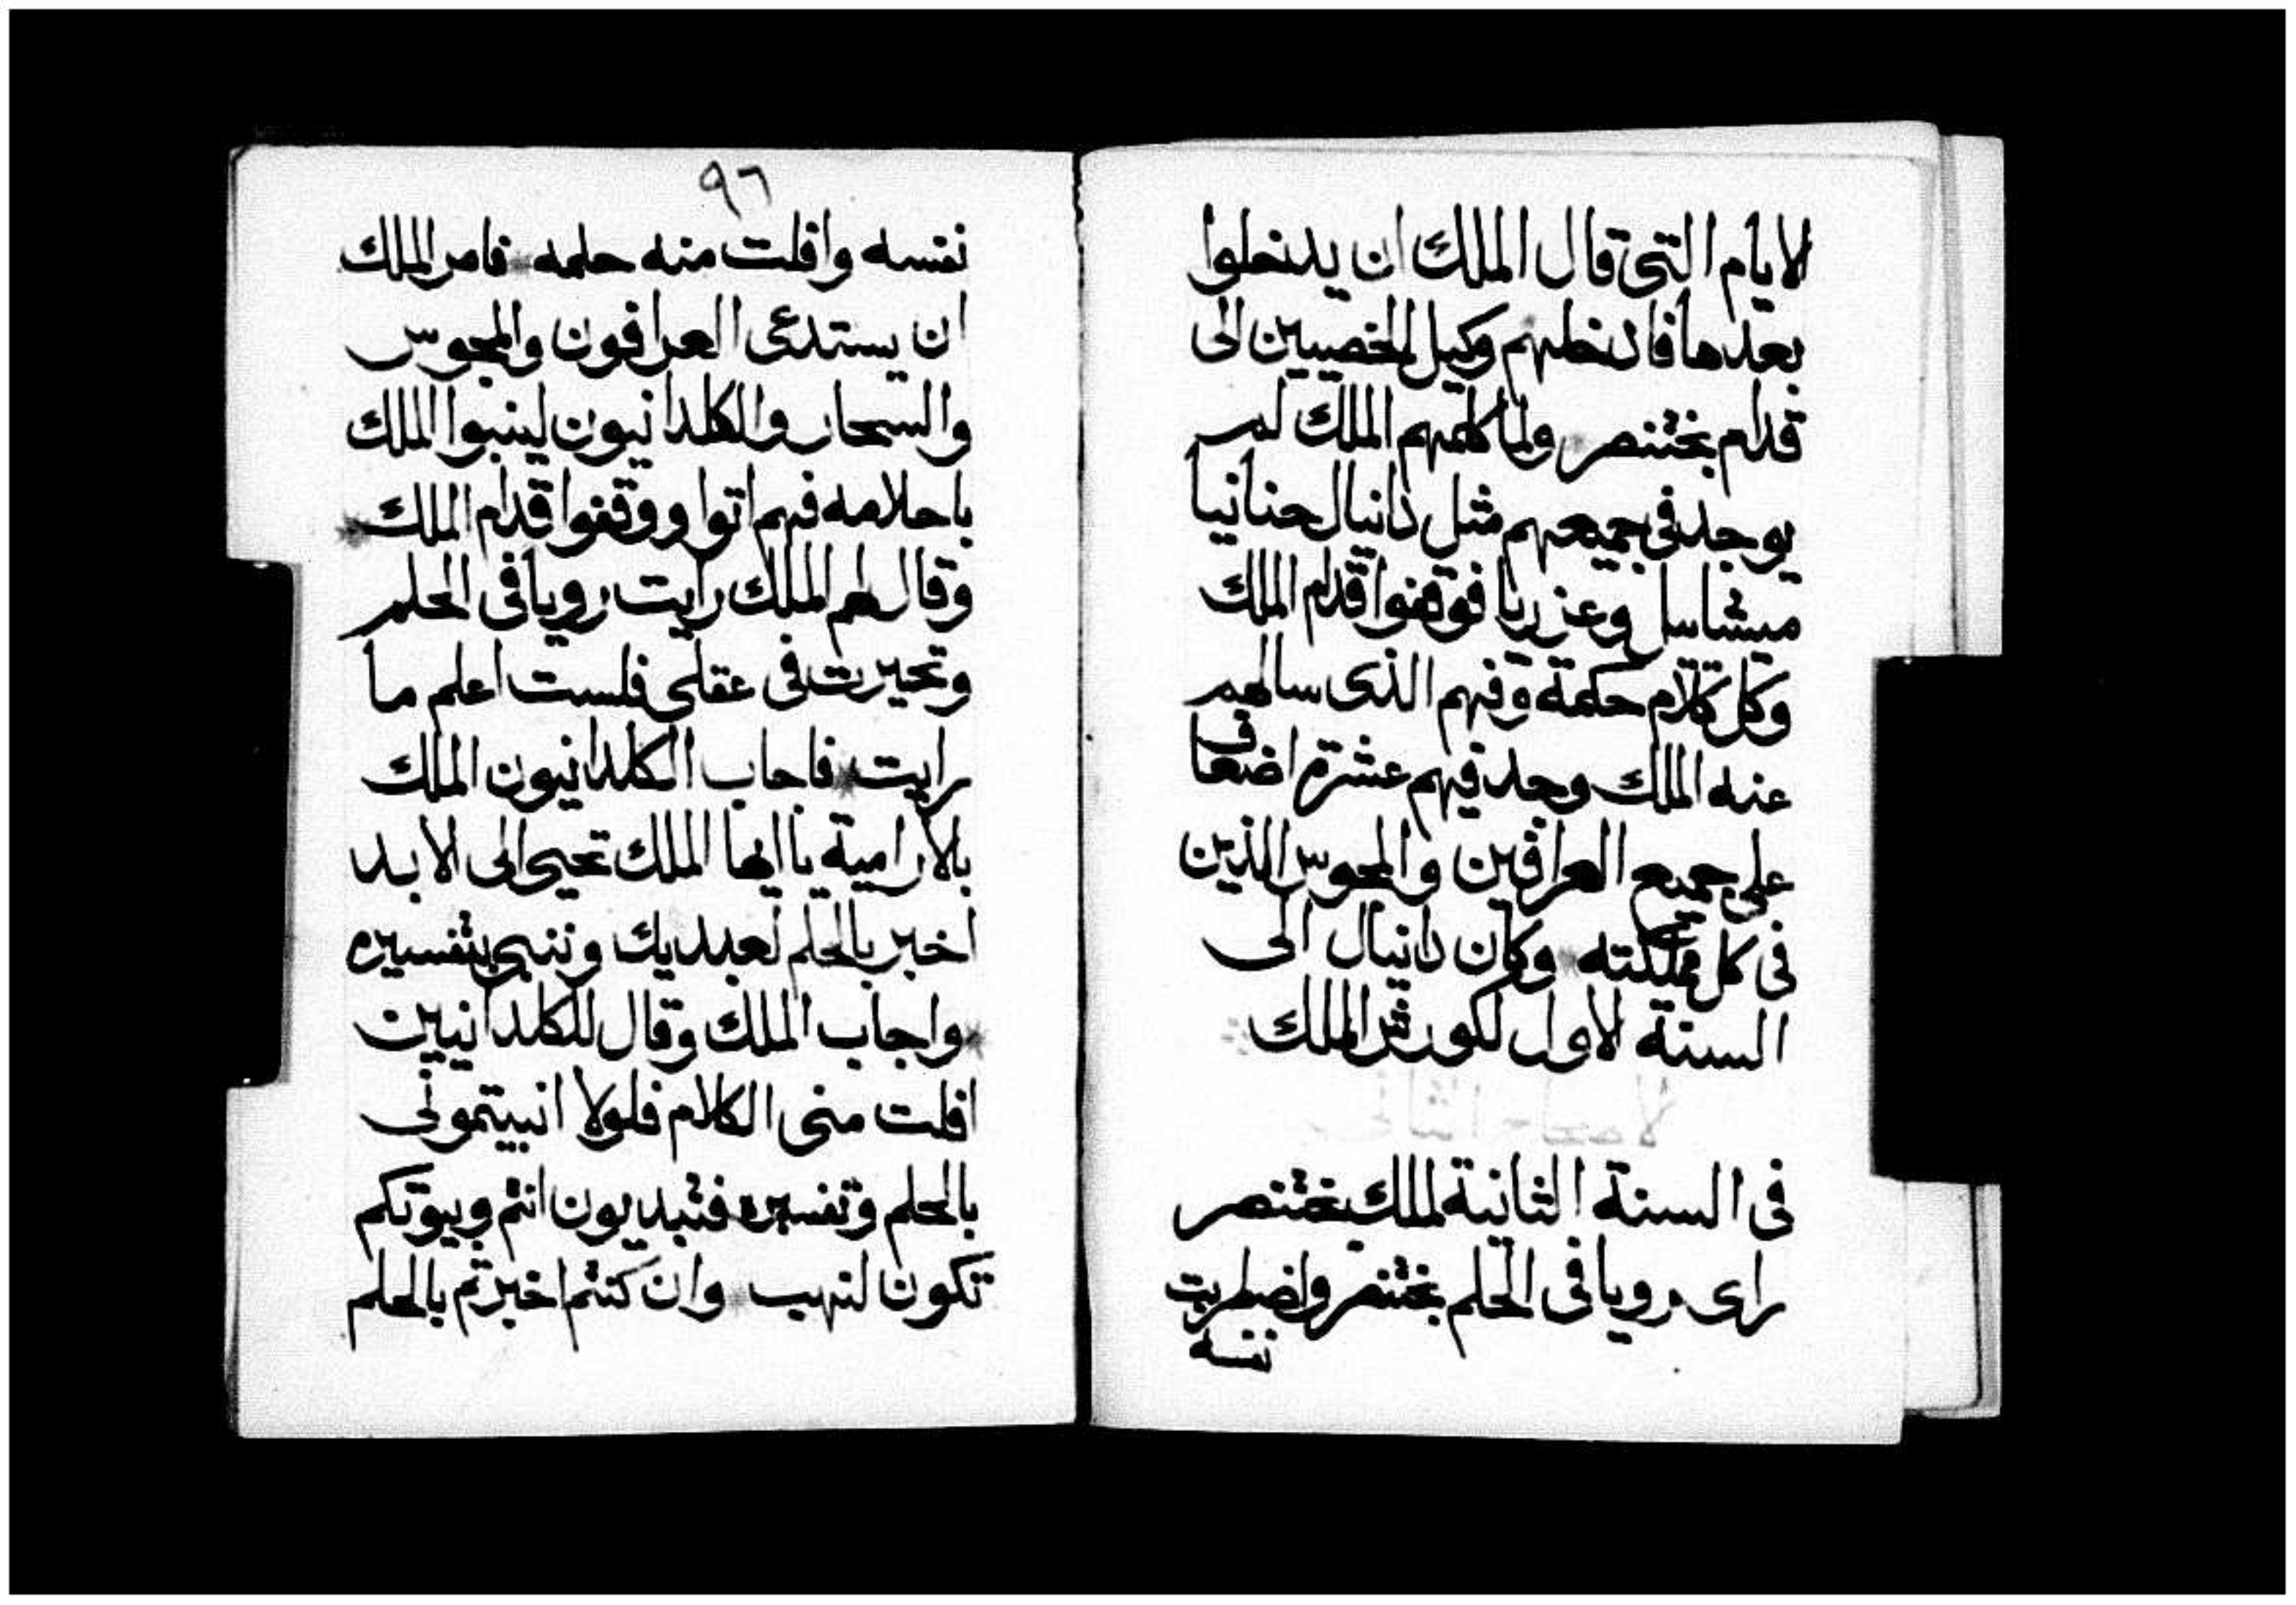 الايام التى قال الملك ان يدخلوا
بعدها فادخلهم وكيل الخصيين الى
قدام بختنصر ولما كلمهم الملك لم
يوجد فى جميعهم مثل دانيال حنانيا
ميشاييل وعزريا فوقفوا قدام الملك
وكل كلام حكمة وفهم الذى سالهم
عنه الملك وجد فيهم عشرة اضعاف
على جميع العرافين والمجوس الذين
فى كل مملكته وكان دانيال الى
السنة الاول لكورش الملك
فى السنة الثانية لملك بختنصر
راى رويا فى الحلم بختنصر واضطربت
نفسه
٩٦
نفسه وافلت منه حلمه فامر الملك
ان يستدعى العرافون والمجوس
والسحار والكلدانيون لينبوا الملك
باحلامه فهم اتوا ووقفوا قدام الملك
وقال لهم الملك رايت رويا فى الحلم
وتحيرت فى عقلى فلست اعلم ما
رايت فاجاب الكلدانيون الملك
بالارامية يا ايها الملك تحيى الى الابد
اخبر بالحلم لعبديك وننبى بتفسيره
واجاب الملك وقال للكلدانيين
افلت منى الكلام فلولا انبيتمونى
بالحلم وتفسيره فتبديون انتم وبيوتكم
تكون لنهب وان كنتم اخبرتم بالحلم